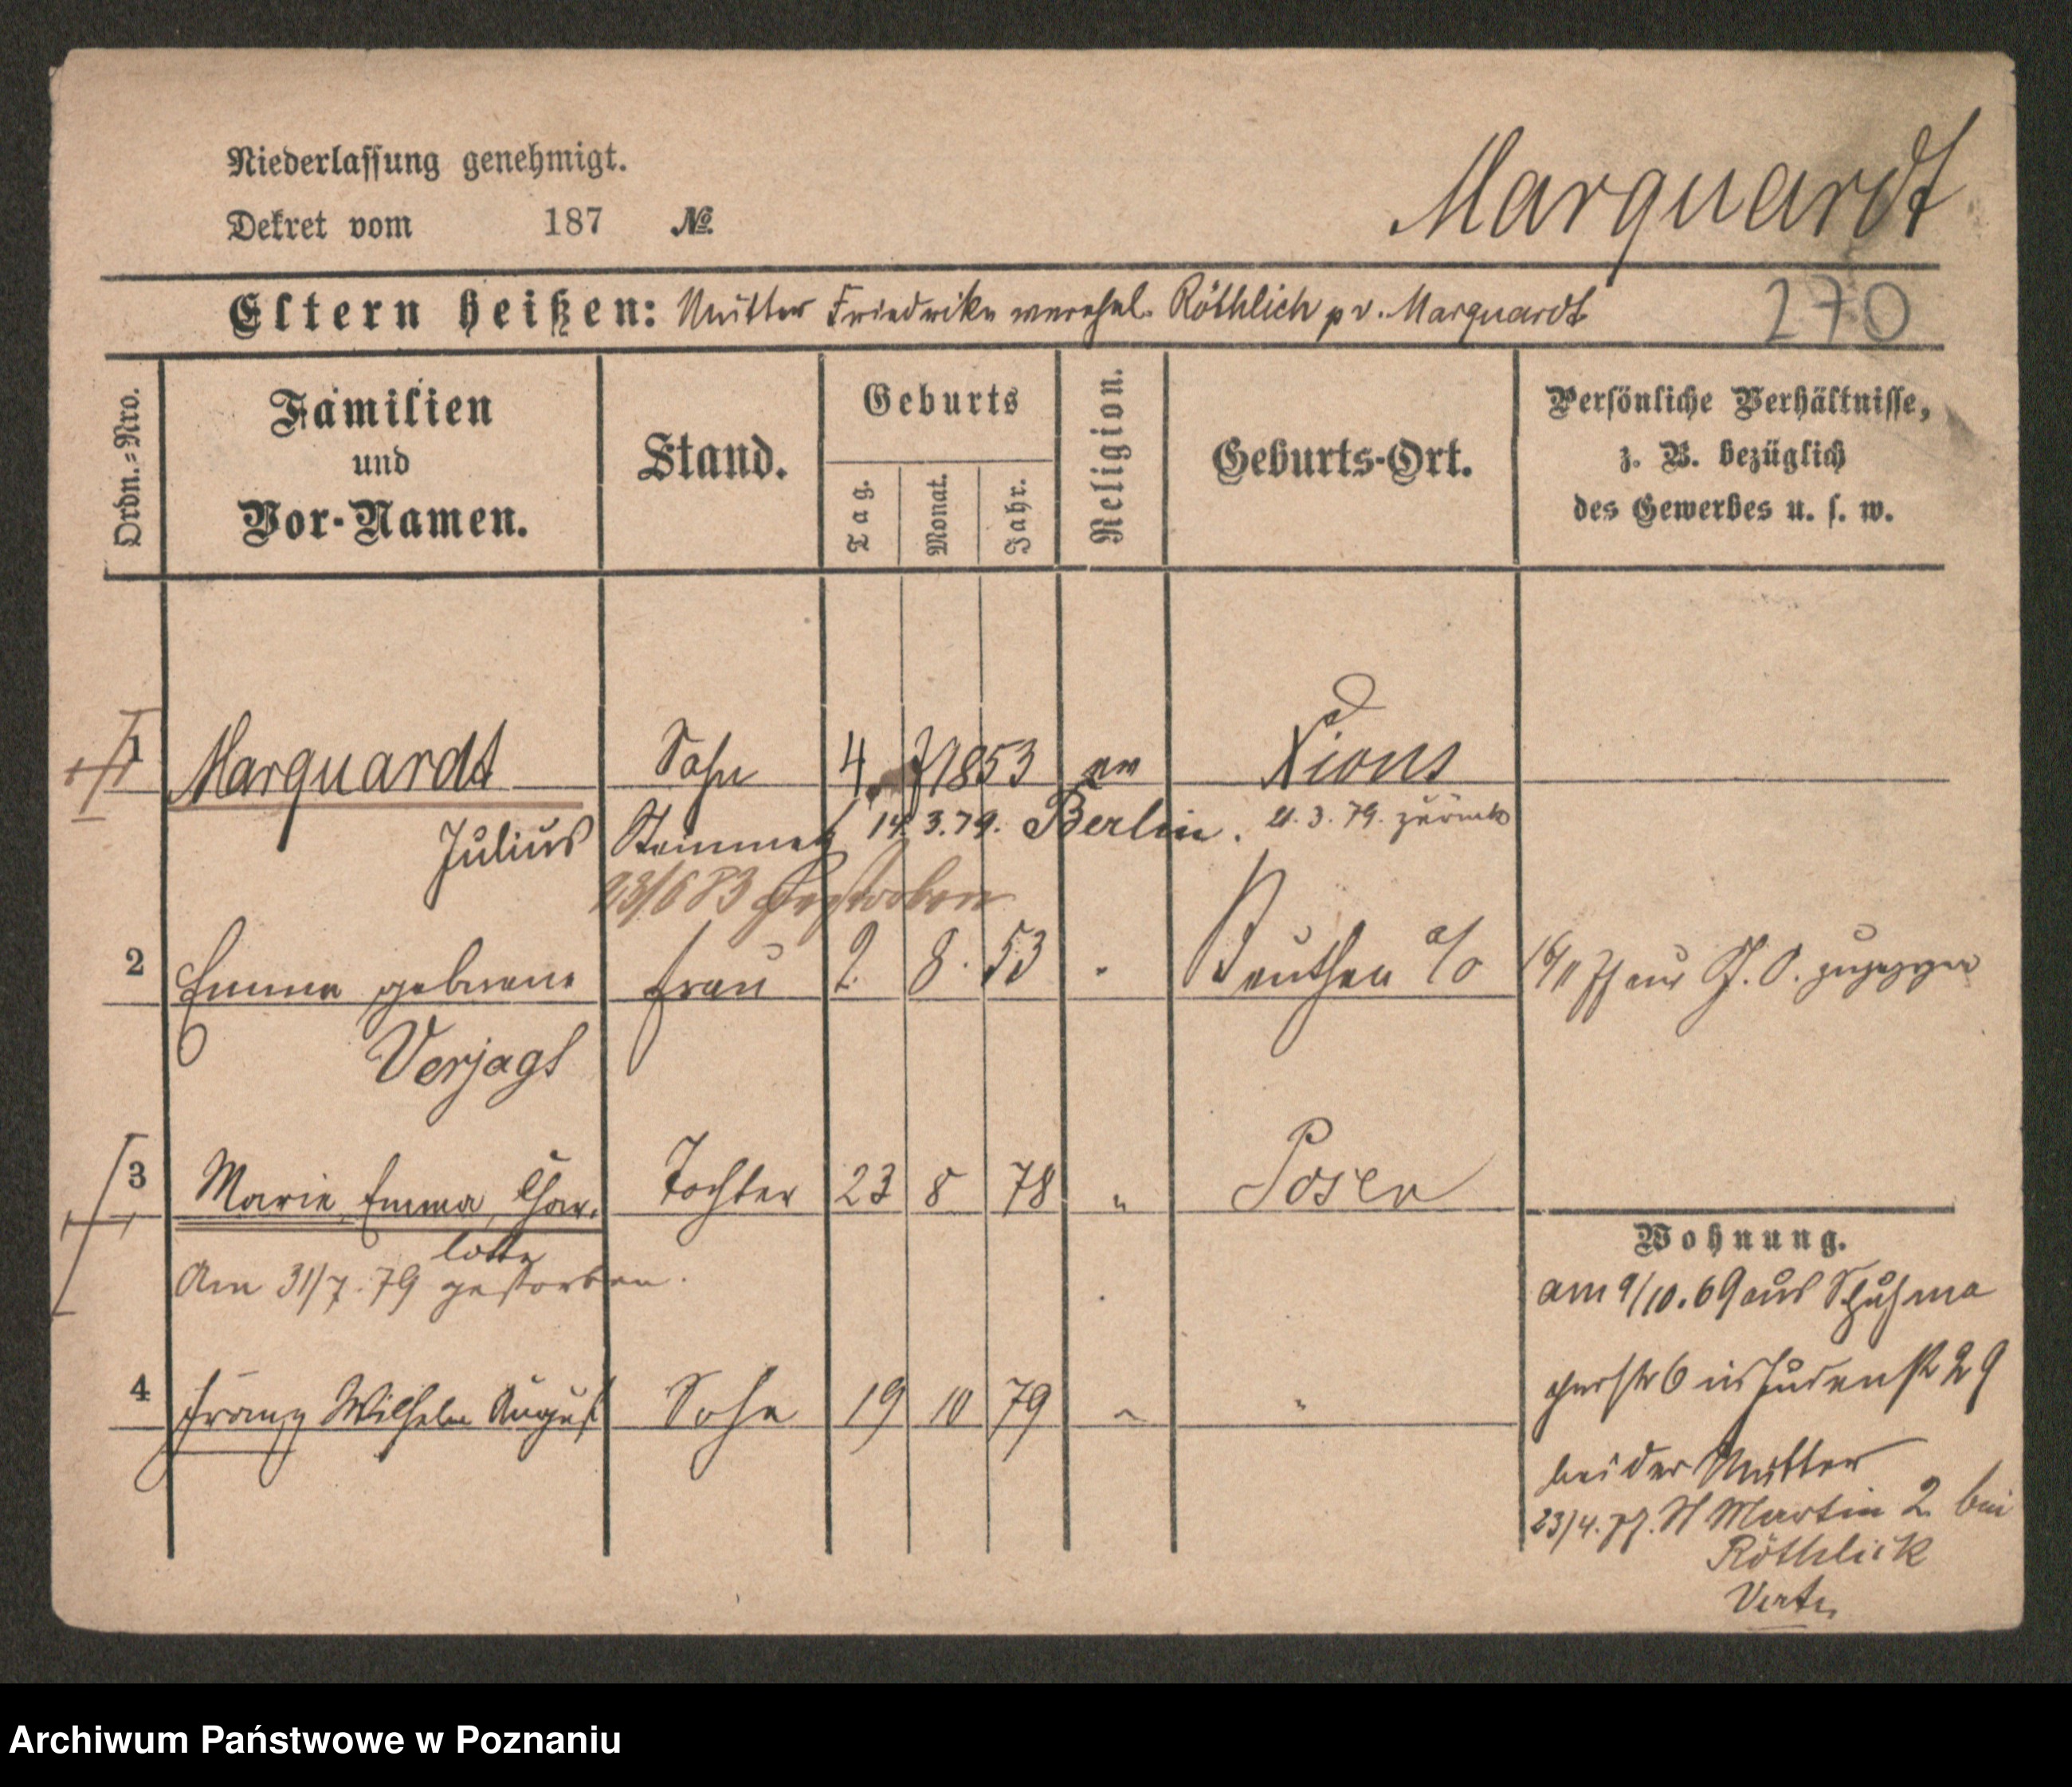 Niederlassung genehmigt.
Dekret vom 187 No.
Marquardt
Eltern heißen: Mutter Friedrike verehel. Röthlich p v. Marquardt
270
Ordn.-Nro.
Familien und Vor-Namen.
Stand.
Geburts
Tag. Monat. Jahr.
Religion.
Geburts-Ort.
Persönliche Verhältnisse,
z. B. bezüglich
des Gewerbes u. s. w.
1 Marquardt Sohn 4 7 1853 ev Xions
Julius Steinmetz 14.3.79. Berlin. 21.3.79. zurück
23/6 83 gestorben
2 Emma geborene Frau 2. 8. 53 " Beuthen a/O
Verjagt
3 Marie, Emma, Char- Tochter 23 8 78 " Posen
lotte
Am 31/7.79 gestorben.
4 Franz Wilhelm August Sohn 19 10 79 " "
Wohnung.
am 9/10.69 aus Schuhma
cherstr 6 in Judenstr 29
bei der Mutter
23/4.77. St Martin 2 bei
Röthlich
Verte